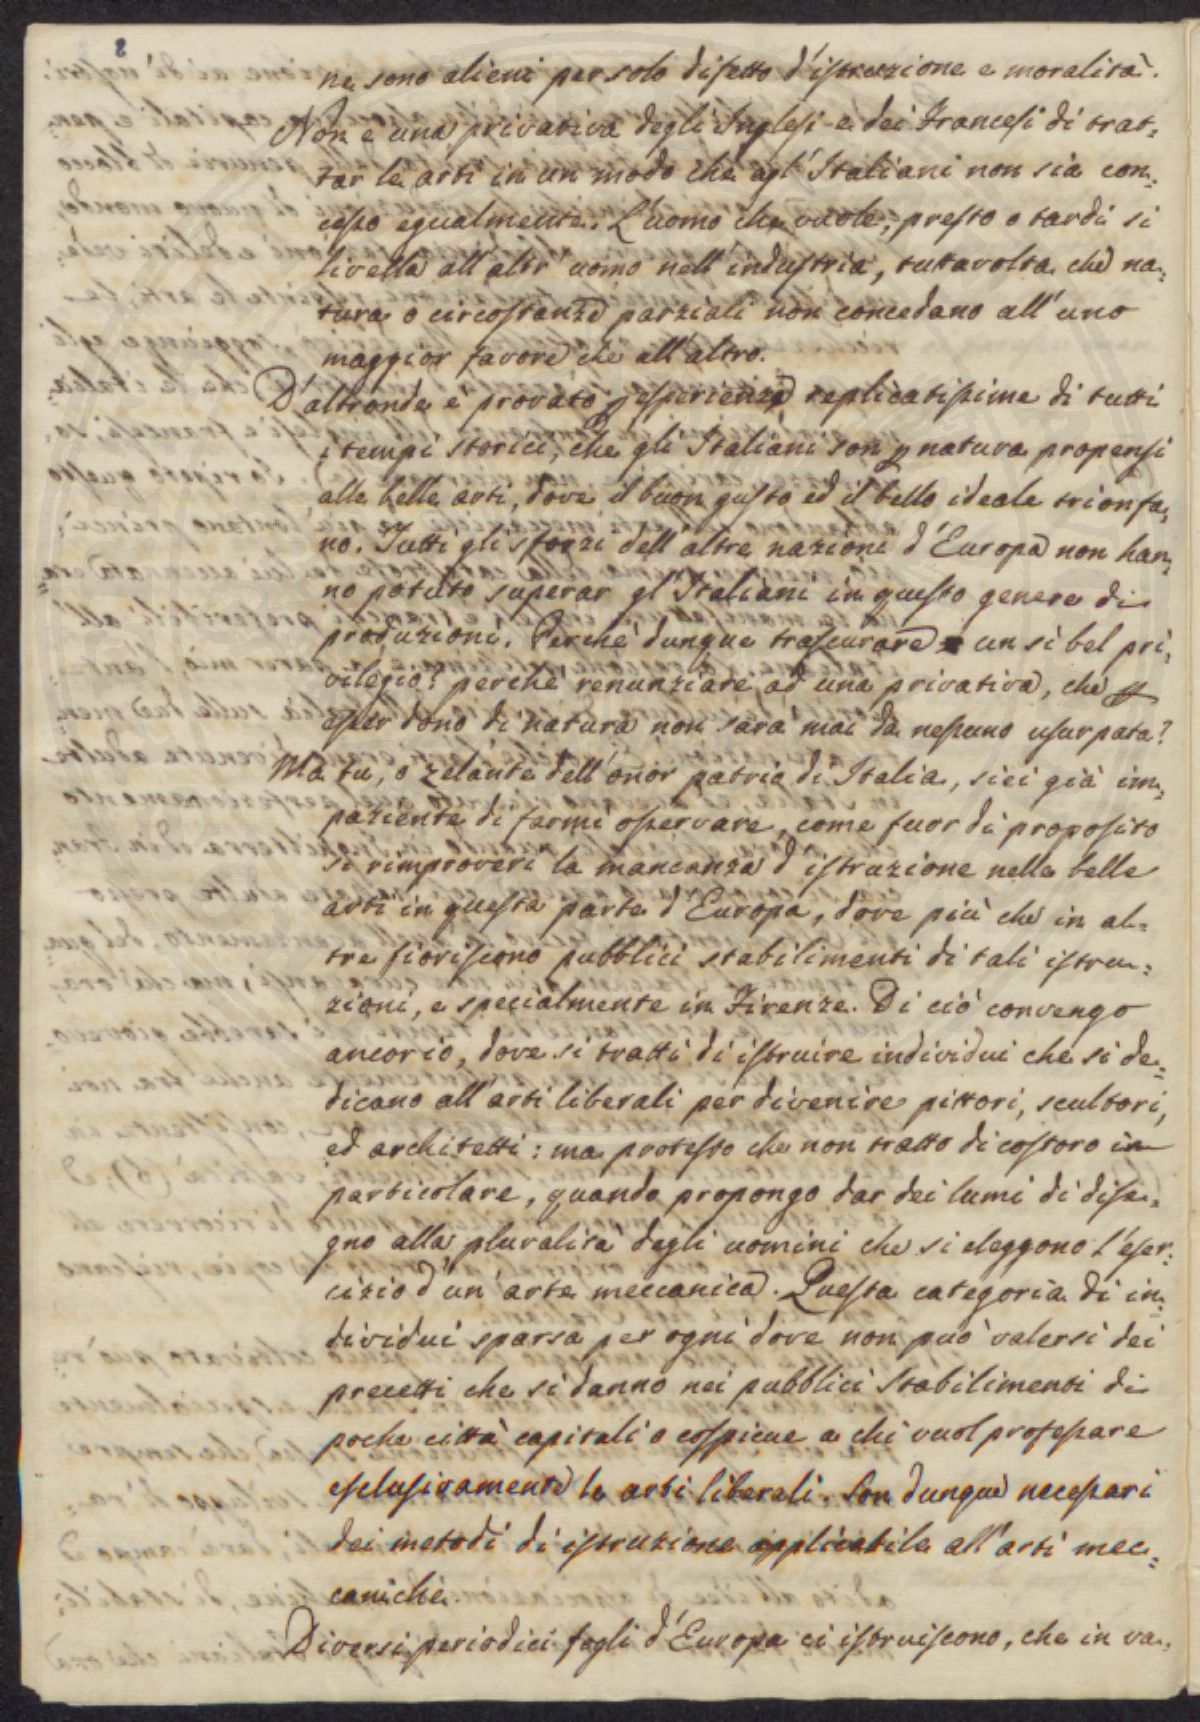 8
ne sono alieni per solo difetto d'istruzione e moralità.
Non è una privativa degli Inglesi e dei Francesi di trat=
tar le arti in un modo che agl'Italiani non sia con=
cesso egualmente. L'uomo che vuole, presto o tardi si
livella all'altr'uomo nell'industria, tuttavolta che na=
tura o circostanze parziali non concedano all'uno
maggior favore che all'altro.
D'altronde è provato p esperienze replicatissime di tutti
i tempi storici, che gli Italiani son p natura propensi
alle belle arti, dove il buon gusto ed il bello ideale trionfa=
no. Tutti gli sforzi dell'altre nazioni d'Europa non han=
no potuto superar gl'Italiani in questo genere di
produzioni. Perchè dunque trascurare un sì bel pri=
vilegio? perchè renunziare ad una privativa, che p
esser dono di natura non sarà mai da nessuno usurpata?
Ma tu, o zelante dell'onor patrio di Italia, siei già im=
paziente di farmi osservare, come fuor di proposito
si rimproveri la mancanza d'istruzione nelle belle
arti in questa parte d'Europa, dove più che in al=
tre fioriscono pubblici stabilimenti di tali istru=
zioni, e specialmente in Firenze. Di ciò convengo
ancor io, dove si tratti di istruire individui che si de=
dicano all'arti liberali per divenire pittori, scultori,
ed architetti: ma protesto che non tratto di costoro in
particolare, quando propongo dar dei lumi di dise=
gno alla pluralità degli uomini che si eleggono l'eser=
cizio d'un'arte meccanica. Questa categoria di in=
dividui sparsa per ogni dove non può valersi dei
precetti che si danno nei pubblici stabilimenti di
poche città capitali o cospicue a chi vuol professare
esclusivamente le arti liberali. Son dunque necessari
dei metodi di istruzione applicabile all'arti mec=
caniche.
Diversi periodici fogli d'Europa ci istruiscono, che in va=